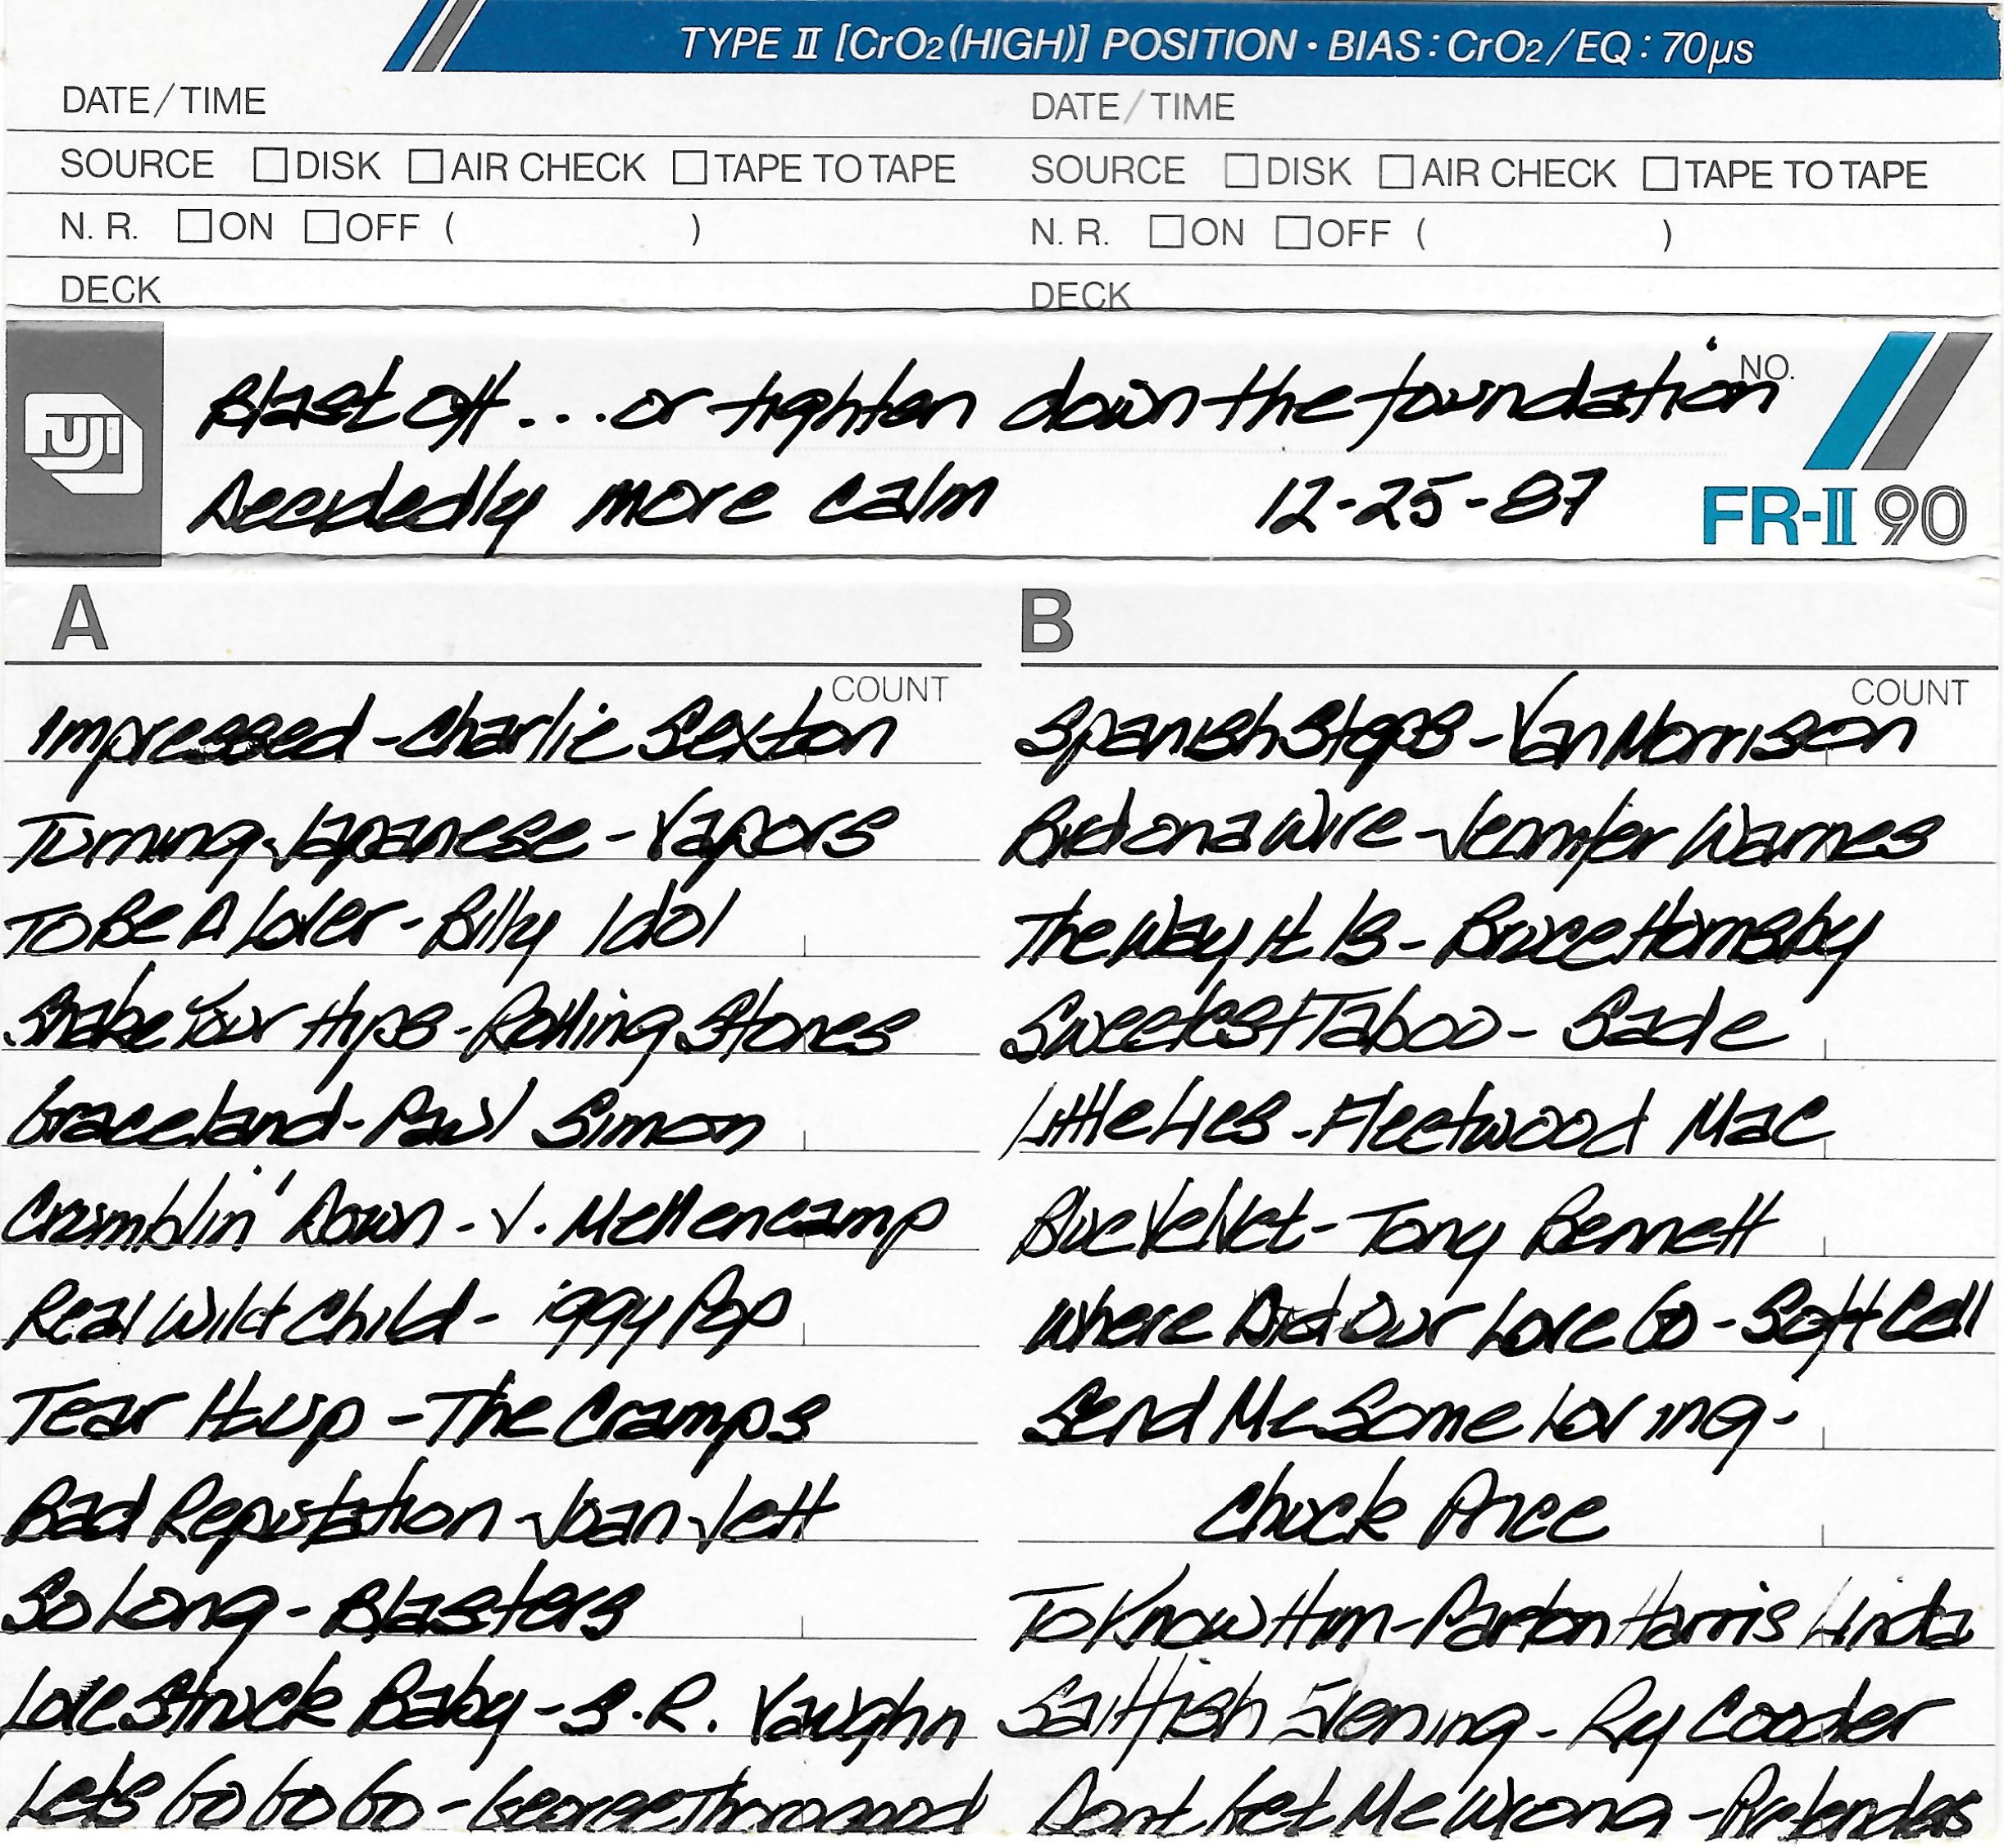 TYPE II [CrO2(HIGH)] POSITION • BIAS: CrO2/EQ: 70µs
DATE/TIME DATE/TIME
SOURCE □DISK □AIR CHECK □TAPE TO TAPE SOURCE □DISK □AIR CHECK □TAPE TO TAPE
N. R. □ON □OFF ( ) N. R. □ON □OFF ( )
DECK DECK
FUJI
Blast off... or tighten down the foundation
NO.
Decidedly more calm 12-25-87
FR-II 90
A
COUNT
Impressed - Charlie Sexton
Turning Japanese - Vapors
To Be A Lover - Billy Idol
Shake Your Hips - Rolling Stones
Graceland - Paul Simon
Crumblin' Down - J. Mellencamp
Real Wild Child - iggy Pop
Tear It Up - The Cramps
Bad Reputation - Joan Jett
So Long - Blasters
Love Struck Baby - S.R. Vaughn
Lets Go Go Go - George Thorogood
B
COUNT
Spanish Steps - Van Morrison
Bird on a Wire - Jennifer Warnes
The Way It Is - Bruce Hornsby
Sweetest Taboo - Sade
Little Lies - Fleetwood Mac
Blue Velvet - Tony Bennett
Where Did Our Love Go - Soft Cell
Send Me Some Loving -
Chuck Price
To Know Him - Parton Harris Linda
Sailfish Evening - Ry Cooder
Dont Get Me Wrong - Pretenders